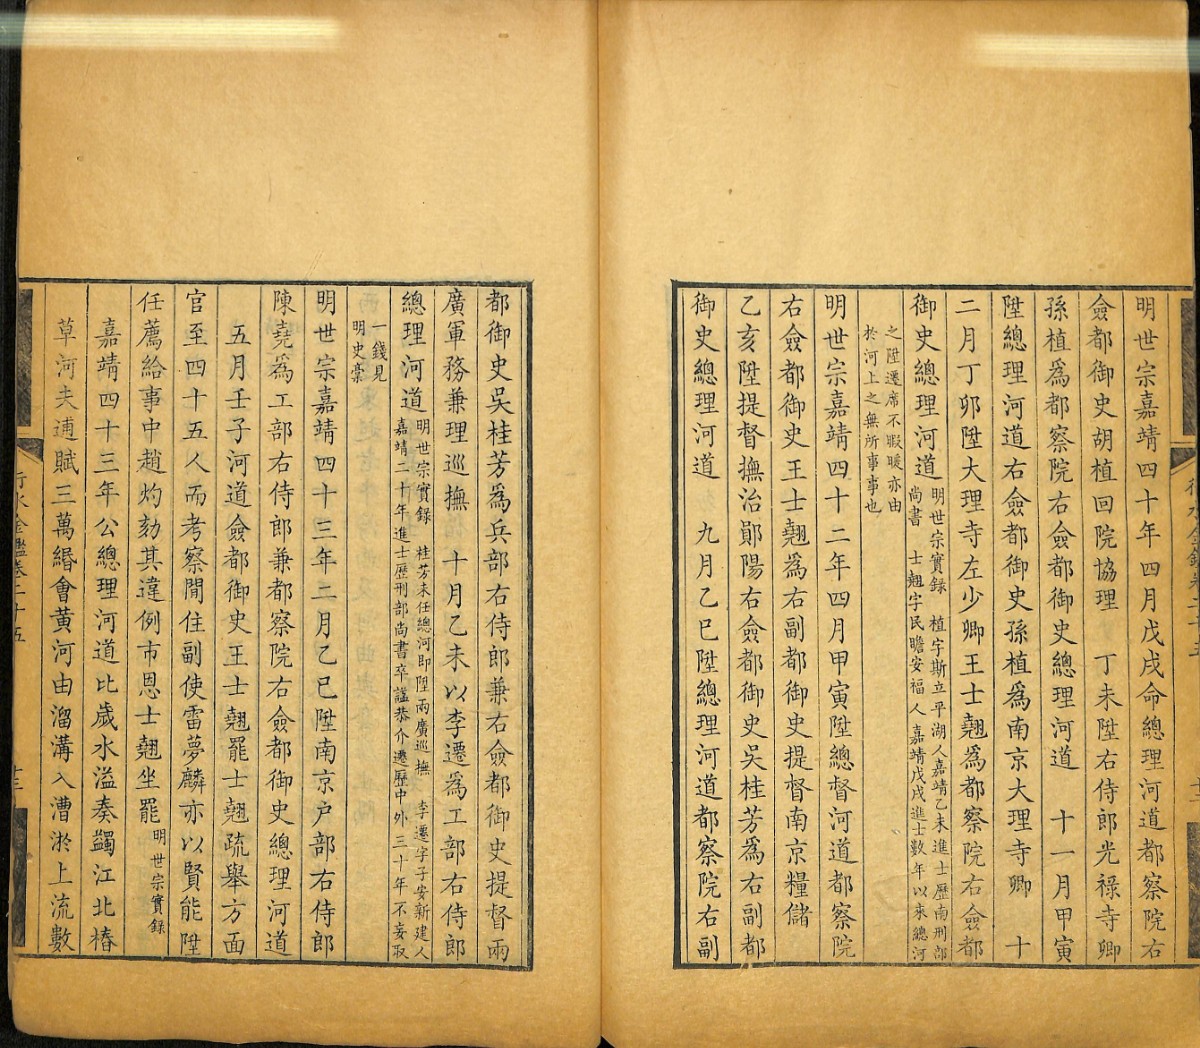 明世宗嘉靖四十年四月戊戌命總理河道都察院右
僉都御史胡植回院協理　丁未陞右侍郎光祿寺卿
孫植爲都察院右僉都御史總理河道　十一月甲寅
陞總理河道右僉都御史孫植爲南京大理寺卿　十
二月丁卯陞大理寺左少卿王士翹爲都察院右僉都
御史總理河道明世宗實錄　植字斯立平湖人嘉靖乙未進士歷南刑部
尚書　士翹字民瞻安福人嘉靖戊戌進士數年以來總河
之陞遷席不暇暖亦由
於河上之無所事事也
明世宗嘉靖四十二年四月甲寅陞總督河道都察院
右僉都御史王士翹爲右副都御史提督南京糧儲
乙亥陞提督撫治鄖陽右僉都御史吳桂芳爲右副都
御史總理河道　九月乙巳陞總理河道都察院右副
都御史吳桂芳爲兵部右侍郎兼右僉都御史提督兩
廣軍務兼理巡撫　十月乙未以李遷爲工部右侍郎
總理河道明世宗實錄　桂芳未任總河即陞兩廣巡撫　李遷字子安新建人
嘉靖二十年進士歷刑部尚書卒諡恭介遷歷中外三十年不妄取
一錢見
明史稾
明世宗嘉靖四十三年二月乙巳陞南京户部右侍郎
陳堯爲工部右侍郎兼都察院右僉都御史總理河道
五月壬子河道僉都御史王士翹罷士翹疏舉方面
官至四十五人而考察閒住副使雷夢麟亦以賢能陞
任薦給事中趙灼劾其違例市恩士翹坐罷明世宗實錄
嘉靖四十三年公總理河道比歲水溢奏蠲江北樁
草河夫逋賦三萬緡會黃河由溜溝入漕淤上流數
行水金鑑卷二十五
十三